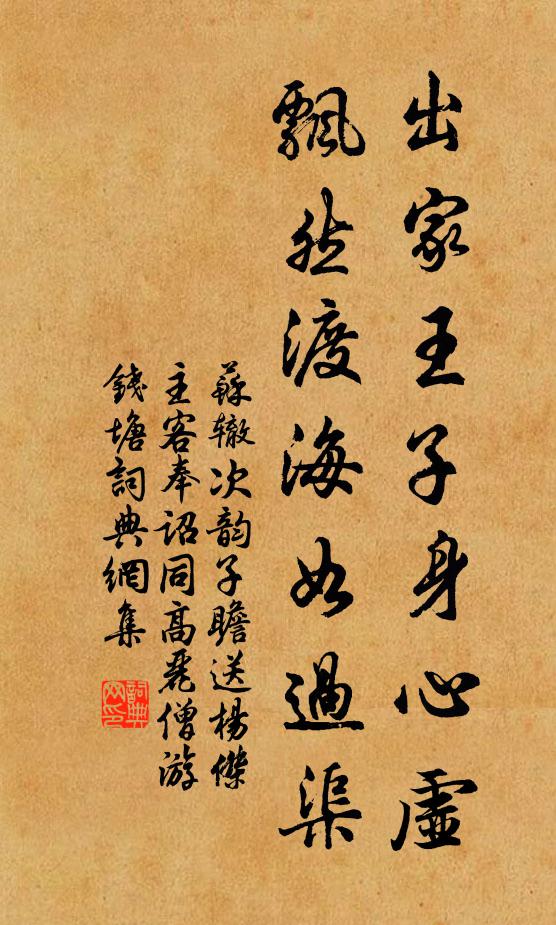 出家王子身心虛
飄然渡海如過渠
蘇轍次韵子瞻送楊傑
主客奉詔同高麗僧游
錢塘詞典網集
詞典網印